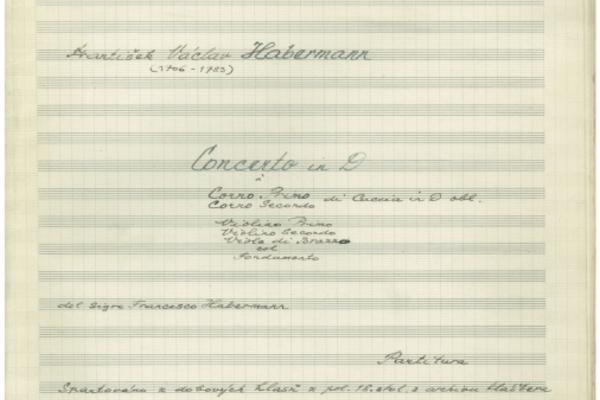 František Václav Habermann
(1706 - 1783)
Concerto in D
à
Corno Primo
Corno Secondo di Caccia in D obl.
Violino Primo
Violino Secondo
Viola di Brazzo
col
Fondamento
del Sigre Francesco Habermann
Partitura
Spartováno z dobových hlasů z pol. 18. stol. z archivu kláštera